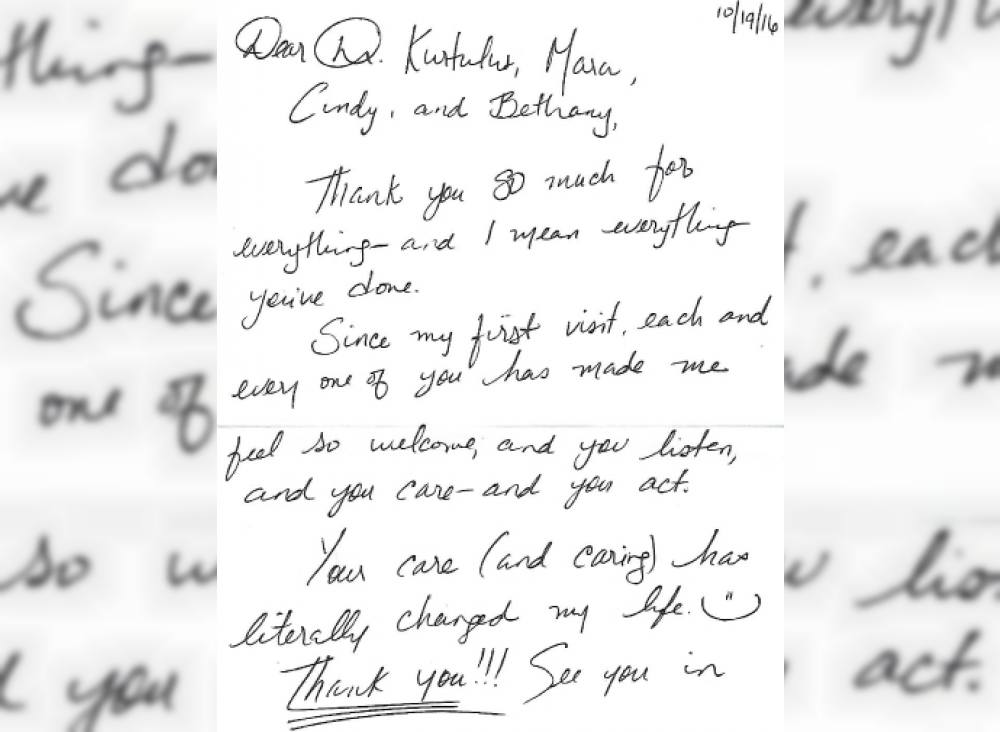 10/19/16
Dear Dr. Kurtulus, Mara,
Cindy, and Bethany,
Thank you SO much for
everything- and I mean everything
you've done.
Since my first visit, each and
every one of you has made me
feel so welcome, and you listen,
and you care- and you act.
Your care (and caring) has
literally changed my life.
Thank you!!! See you in